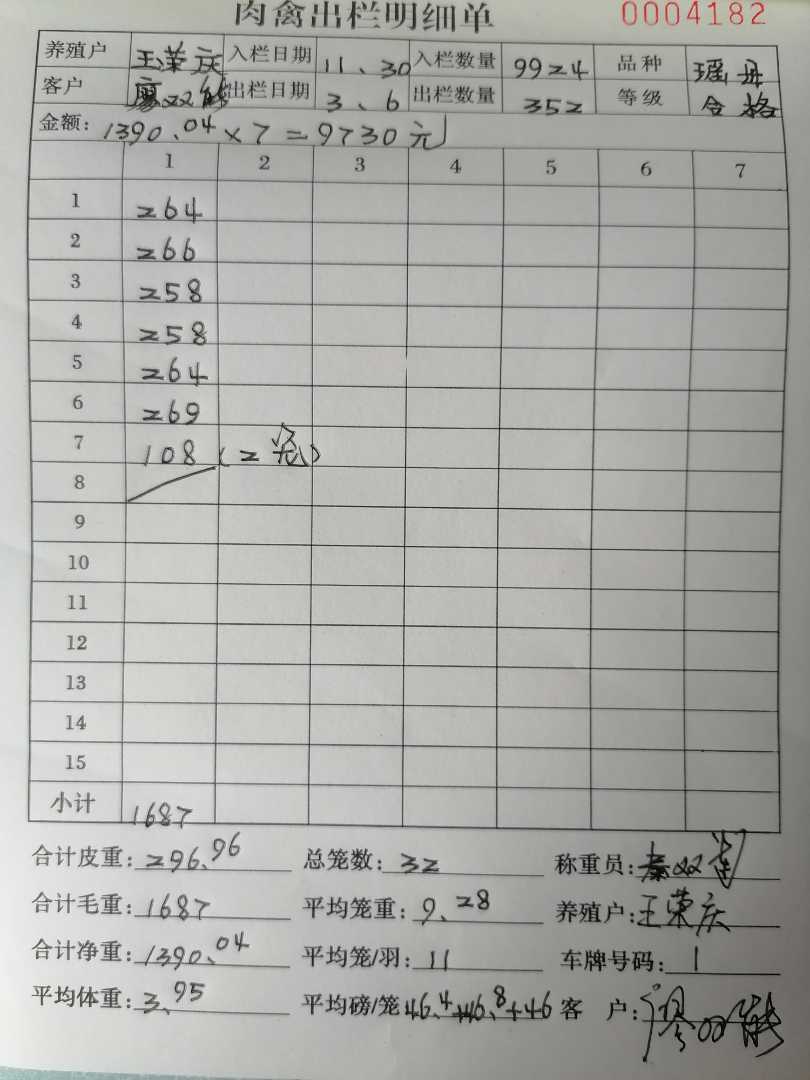 肉禽出栏明细单 0004182
养殖户 王荣庆 入栏日期 11、30 入栏数量 9924 品种 瑶丹
客户 廖双能 出栏日期 3、6 出栏数量 352 等级 合格
金额: 1390.04×7=9730元
1 2 3 4 5 6 7
1 264
2 266
3 258
4 258
5 264
6 269
7 108(2笼)
8
9
10
11
12
13
14
15
小计 1687
合计皮重: 296.96 总笼数: 32 称重员:
合计毛重: 1687 平均笼重: 9.28 养殖户: 王荣庆
合计净重: 1390.04 平均笼/羽: 11 车牌号码: 1
平均体重: 3.95 平均磅/笼 46.4+46.8+46 客户: 廖双能